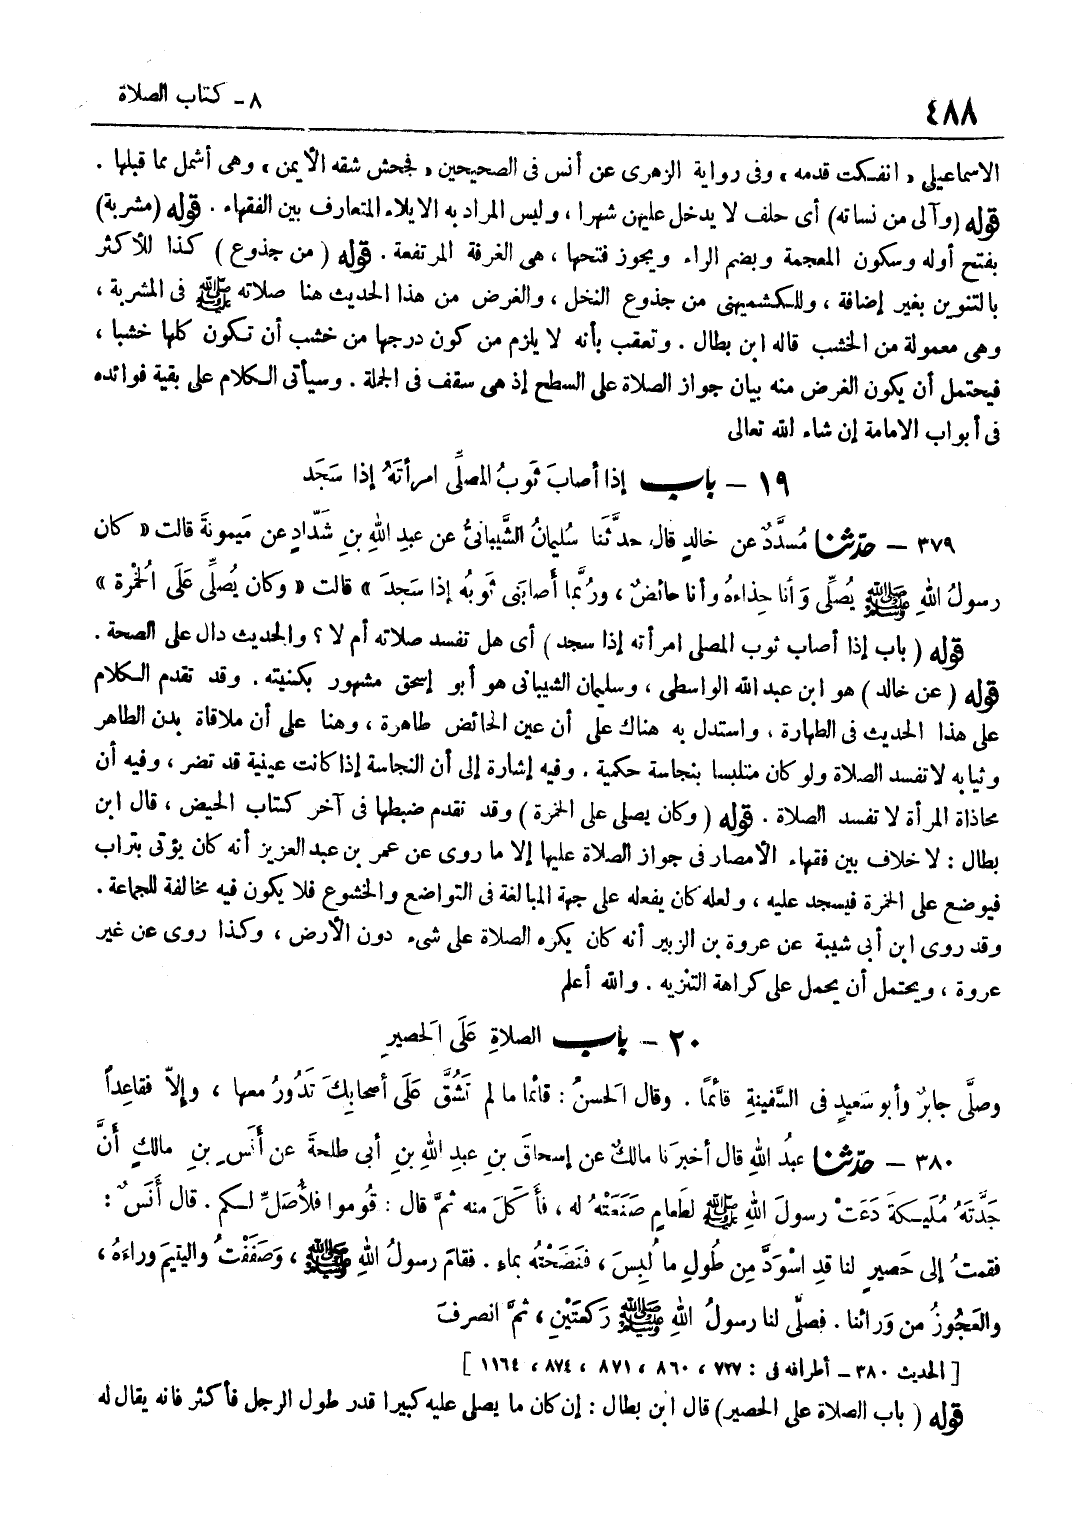 ٤٨٨
٨ - كتاب الصلاة
الاسماعيلى « انفكت قدمه » وفى رواية الزهرى عن أنس فى الصحيحين « فجحش شقه الأيمن » وهى أشمل مما قبلها .
قوله (وآلى من نسائه) أى حلف لا يدخل عليهن شهرا ، وليس المراد به الايلاء المتعارف بين الفقهاء . قوله (مشربة)
بفتح أوله وسكون المعجمة وبضم الراء ويجوز فتحها ، هى الغرفة المرتفعة . قوله ( من جذوع ) كذا للأكثر
بالتنوين بغير إضافة ، وللكشميهنى من جذوع النخل ، والغرض من هذا الحديث هنا صلاته ﷺ فى المشربة ،
وهى معمولة من الخشب قاله ابن بطال . وتعقب بأنه لا يلزم من كون درجها من خشب أن تكون كلها خشبا ،
فيحتمل أن يكون الغرض منه بيان جواز الصلاة على السطح إذ هى سقف فى الجملة . وسيأتى الكلام على بقية فوائده
فى أبواب الامامة إن شاء الله تعالى
١٩ - باب إذا أصابَ ثَوبُ المصلِّى امرأتَهُ إذا سَجَد
٣٧٩ - حدّثنا مُسدَّدٌ عن خالدٍ قال حدثَّنَا سُليمانُ الشَّيبانىُّ عن عبدِ اللهِ بنِ شَدّادٍ عن مَيمونةَ قالت « كان
رسولُ اللهِ ﷺ يُصلِّى وَأنا حِذاءهُ وأنا حائضٌ ، ورُبَّما أصابَنى ثَوبُه إذا سَجدَ » قالت « وكان يُصلِّى عَلَى الْخُمْرة »
قوله ( باب إذا أصاب ثوب المصلى امرأته إذا سجد ) أى هل تفسد صلاته أم لا ؟ والحديث دال على الصحة .
قوله ( عن خالد ) هو ابن عبد الله الواسطى ، وسليمان الشيبانى هو أبو إسحق مشهور بكنيته . وقد تقدم الكلام
على هذا الحديث فى الطهارة ، واستدل به هناك على أن عين الحائض طاهرة ، وهنا على أن ملاقاة بدن الطاهر
وثيابه لا تفسد الصلاة ولو كان متلبسا بنجاسة حكمية . وفيه إشارة إلى أن النجاسة إذا كانت عينية قد تضر ، وفيه أن
محاذاة المرأة لا تفسد الصلاة . قوله ( وكان يصلى على الخمرة ) وقد تقدم ضبطها فى آخر كتاب الحيض ، قال ابن
بطال : لا خلاف بين فقهاء الأمصار فى جواز الصلاة عليها إلا ما روى عن عمر بن عبد العزيز أنه كان يؤتى بتراب
فيوضع على الخمرة فيسجد عليه ، ولعله كان يفعله على جهة المبالغة فى التواضع والخشوع فلا يكون فيه مخالفة للجماعة .
وقد روى ابن أبى شيبة عن عروة بن الزبير أنه كان يكره الصلاة على شىء دون الأرض ، وكذا روى عن غير
عروة ، ويحتمل أن يحمل على كراهة التنزيه . والله أعلم
٢٠ - باب الصلاةِ عَلَى الَحصيرِ
وصلَّى جابرٌ وأبو سَعيدٍ فى السَّفينةِ قائمًا . وقال الَحسنُ : قائما ما لم تَشُقَّ عَلَى أصحابِكَ تَدُورُ معها ، وإلاّ فقاعِداً
٣٨٠ - حدّثنا عبدُ اللهِ قال أخبرَنا مالكٌ عن إسحاقَ بنِ عبدِ اللهِ بنِ أبى طلحةَ عن أنَسِ بنِ مالكٍ أنَّ
جَدَّتَهُ مُلَيكةَ دَعَتْ رسولَ اللهِ ﷺ لطَعامٍ صَنَعَتْهُ له ، فأَكلَ منه ثمَّ قال : قُوموا فلأُصَلِّ لكم . قال أنَسٌ :
فقمتُ إلى حَصيرٍ لنا قدِ اسْوَدَّ مِن طُولِ ما لُبِسَ ، فنَضَحْتُه بماءٍ . فقامَ رسولُ اللهِ ﷺ ، وَصَفَفْتُ واليتيمَ وراءَهُ ،
والعَجُوزُ من وَرائنا . فصلَّى لنا رسولُ اللهِ ﷺ رَكعتَيْنِ ، ثمَّ انصرفَ
[ الحديث ٣٨٠ - أطرافه فى : ٧٢٧ ، ٨٦٠ ، ٨٧١ ، ٨٧٤ ، ١١٦٤ ]
قوله ( باب الصلاة على الحصير) قال ابن بطال : إن كان ما يصلى عليه كبيرا قدر طول الرجل فأكثر فانه يقال له